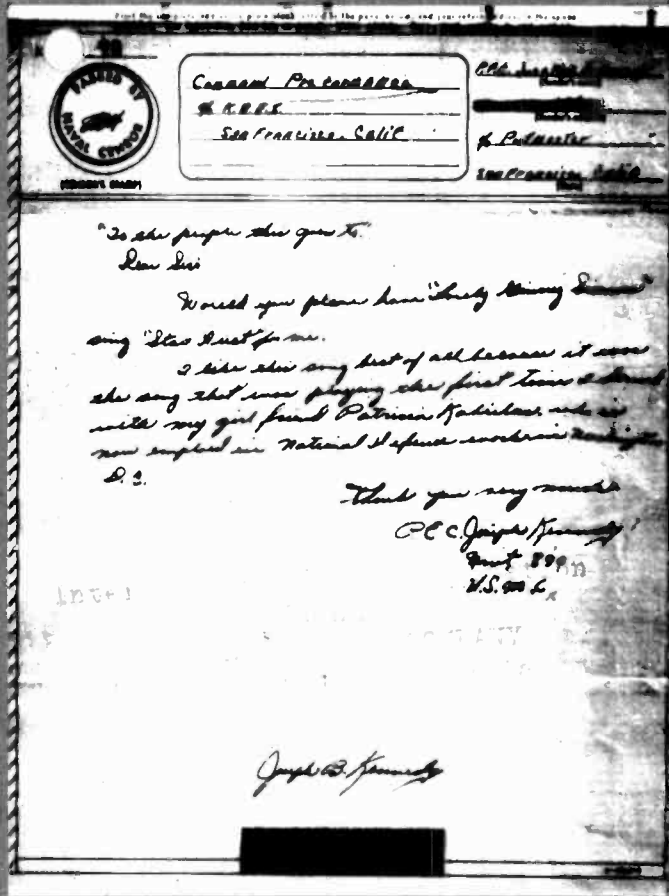 PASSED BY
NAVAL CENSOR
(CENSOR'S STAMP)
Command Performance
% K.N.R.X.
San Francisco, Calif
% Postmaster
San Francisco, Calif
"To the people this goes to"
Dear Sirs
Would you please have "Lovely Ginny Simms"
sing "Star Dust for me.
I like this song best of all because it was
the song that was playing the first time I danced
with my girl friend Patricia who is
now employed in National Defense work in Washington
D.C.
Thank you very much
P.F.C. Joseph Kennedy
Unit 890
U.S.M.C.
Joseph B. Kennedy